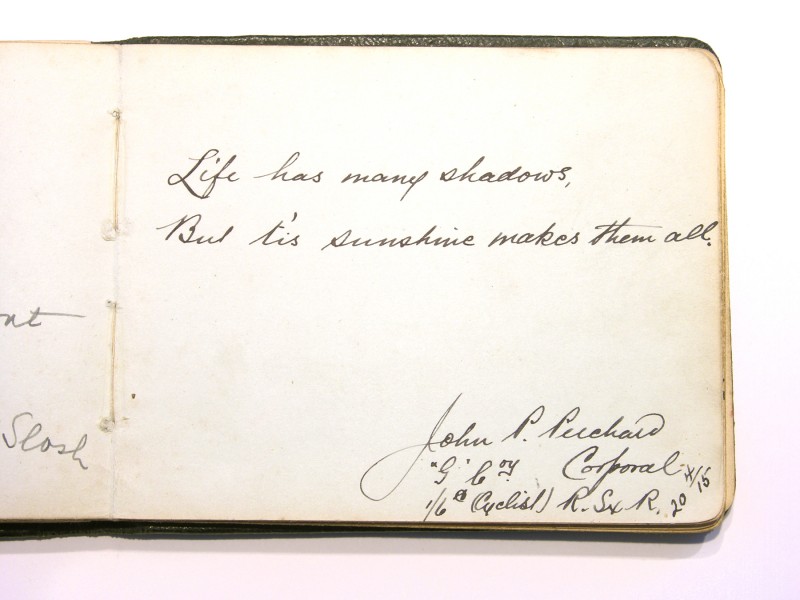 Life has many shadows,
But ti's sunshine makes them all.
John P. Perchard
"G" Coy Corporal
1/6th (Cyclist) R. Sx R. 20/4/15
Slosh